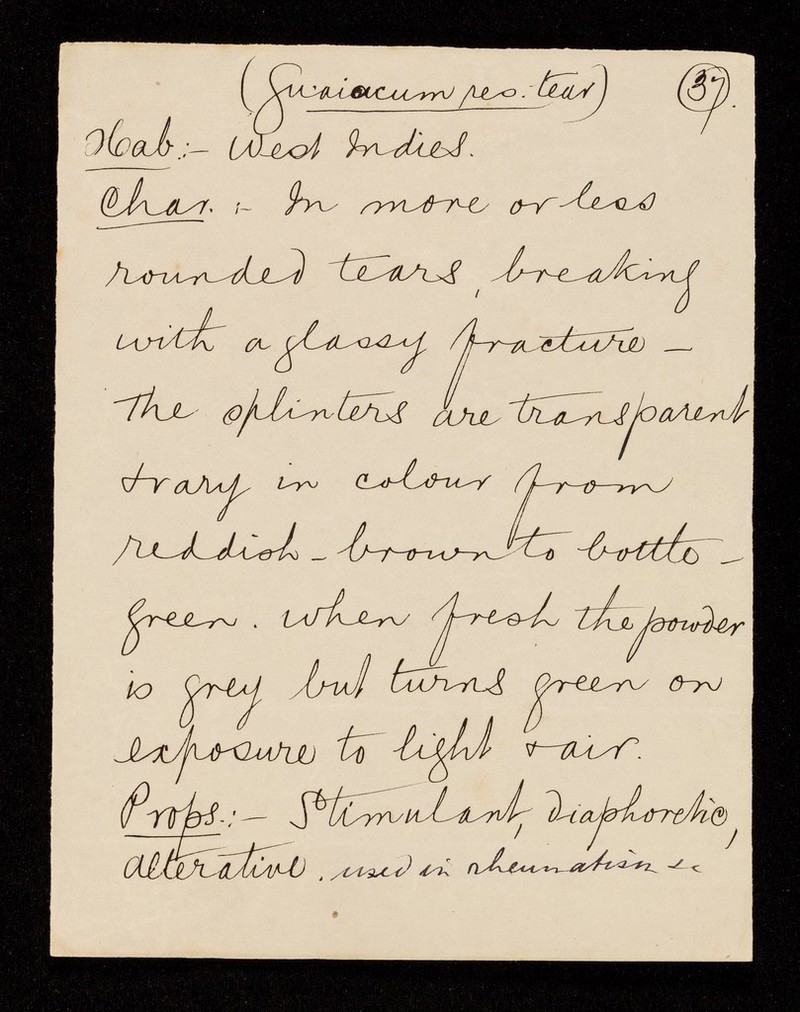 (Guaiacum res. tear) 37.
Hab:- West Indies.
Char. :- In more or less
rounded tears, breaking
with a glassy fracture -
The splinters are transparent
& vary in colour from
reddish-brown to bottle-
green. When fresh the powder
is grey but turns green on
exposure to light & air.
Props.:- Stimulant, diaphoretic,
alterative. used in rheumatism &c